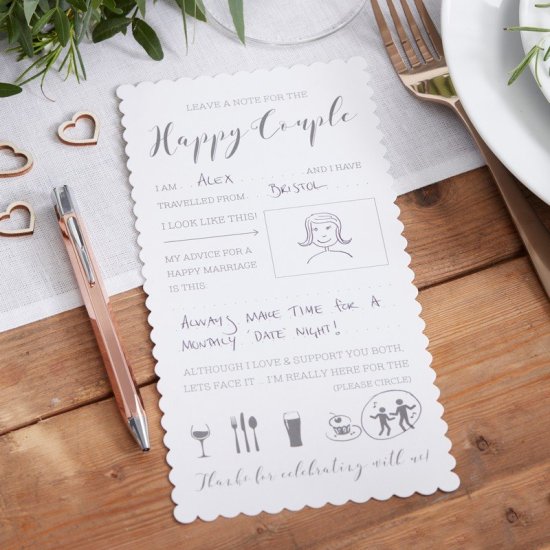 LEAVE A NOTE FOR THE
Happy Couple
I AM . . ALEX . . . . . . AND I HAVE
TRAVELLED FROM . . BRISTOL . . . .
I LOOK LIKE THIS!
MY ADVICE FOR A
HAPPY MARRIAGE
IS THIS:
ALWAYS MAKE TIME FOR A
MONTHLY 'DATE' NIGHT!
ALTHOUGH I LOVE & SUPPORT YOU BOTH,
LETS FACE IT .. I'M REALLY HERE FOR THE
(PLEASE CIRCLE)
Thanks for celebrating with us!